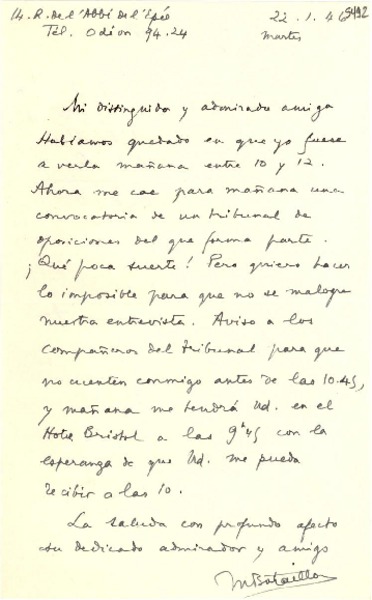 14. R. de l'Abbé de l'Epée 22.1.46
Tél. Odéon 94.24 martes
Mi distinguida y admirada amiga
Habíamos quedado en que yo fuese
a verla mañana entre 10 y 12.
Ahora me cae para mañana una
convocatoria de un tribunal de
oposiciones del que forma parte.
¡Qué poca suerte! Pero quiero hacer
lo imposible para que no se malogre
nuestra entrevista. Aviso a los
compañeros del tribunal para que
no cuenten conmigo antes de las 10.45,
y mañana me tendrá Ud. en el
Hotel Bristol a las 9h45 con la
esperanza de que Ud. me pueda
recibir a las 10.
La saluda con profundo afecto
su dedicado admirador y amigo
M Bataillon